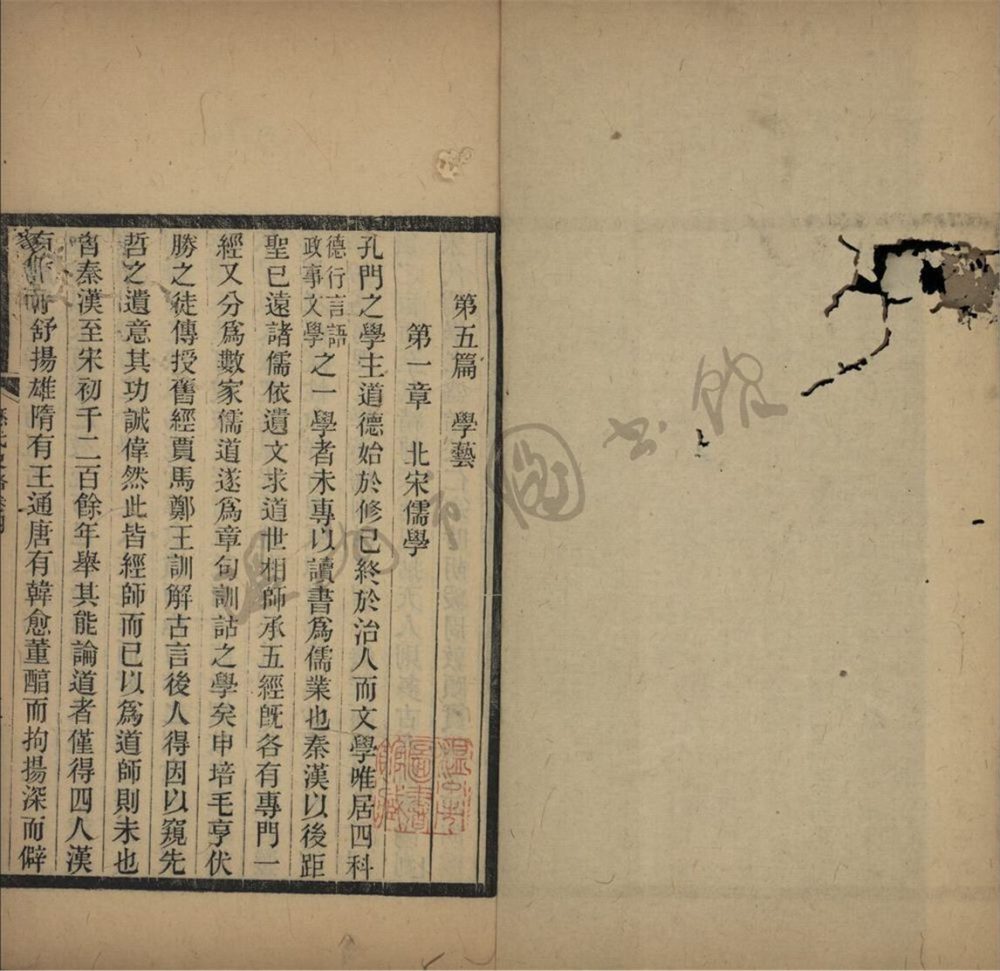 第五篇 學藝
第一章 北宋儒學
孔門之學主道德始於修己終於治人而文學唯居四科
德行言語政事文學之一學者未專以讀書爲儒業也秦漢以後距
聖已遠諸儒依遺文求道世相師承五經既各有專門一
經又分爲數家儒道遂爲章句訓詁之學矣申培毛亨伏
勝之徒傳授舊經賈馬鄭王訓解古言後人得因以窺先
哲之遺意其功誠偉然此皆經師而已以爲道師則未也
秦漢至宋初千二百餘年舉其能論道者僅得四人漢
有舒揚雄隋有王通唐有韓愈董醇而拘揚深而僻
溫州市圖書館